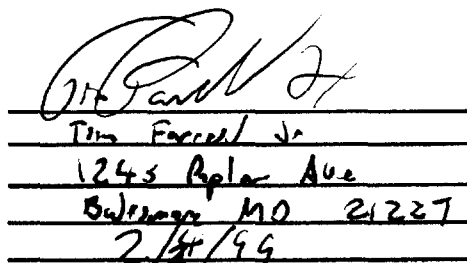 Tim Farrell Jr
1245 Poplar Ave
Baltimore MD 21227
2/4/99